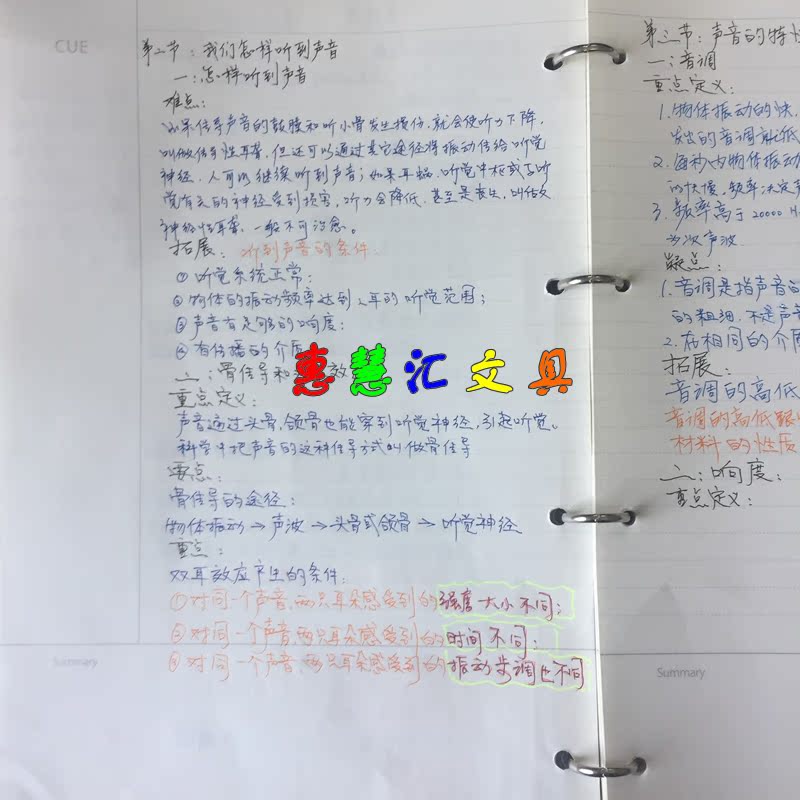 CUE
第二节:我们怎样听到声音
一:怎样听到声音
难点:
如果传导声音的鼓膜和听小骨发生损伤,就会使听力下降,
叫做传导性耳聋,但还可以通过其它途径将振动传给听觉
神经,人可以继续听到声音;如果耳蜗、听觉中枢或与听
觉有关的神经受到损害,听力会降低,甚至是丧失,叫做
神经性耳聋,一般不可治愈。
拓展:听到声音的条件
①听觉系统正常;
②物体的振动频率达到人耳的听觉范围;
③声音有足够的响度;
④有传播的介质
二:骨传导和双耳效
惠慧汇文具
重点定义:
声音通过头骨,颌骨也能穿到听觉神经,引起听觉。
科学中把声音的这种传导方式叫做骨传导
要点:
骨传导的途径:
物体振动→声波→头骨或颌骨→听觉神经
重点:
双耳效应产生的条件:
①对同一个声音,两只耳朵感受到的强度大小不同;
②对同一个声音,两只耳朵感受到的时间不同;
③对同一个声音,两只耳朵感受到的振动步调也不同
Summary
第三节:声音的特性
一:音调
重点定义:
1.物体振动的快
发出的音调就低
2.每秒内物体振动
的快慢,频率决定
3.频率高于20000H
为次声波
疑点:
1.音调是指声音的
的粗细,不是声音
2.在相同的介质
拓展:
音调的高低
音调的高低跟
材料的性质
二:响度:
重点定义:
Summary